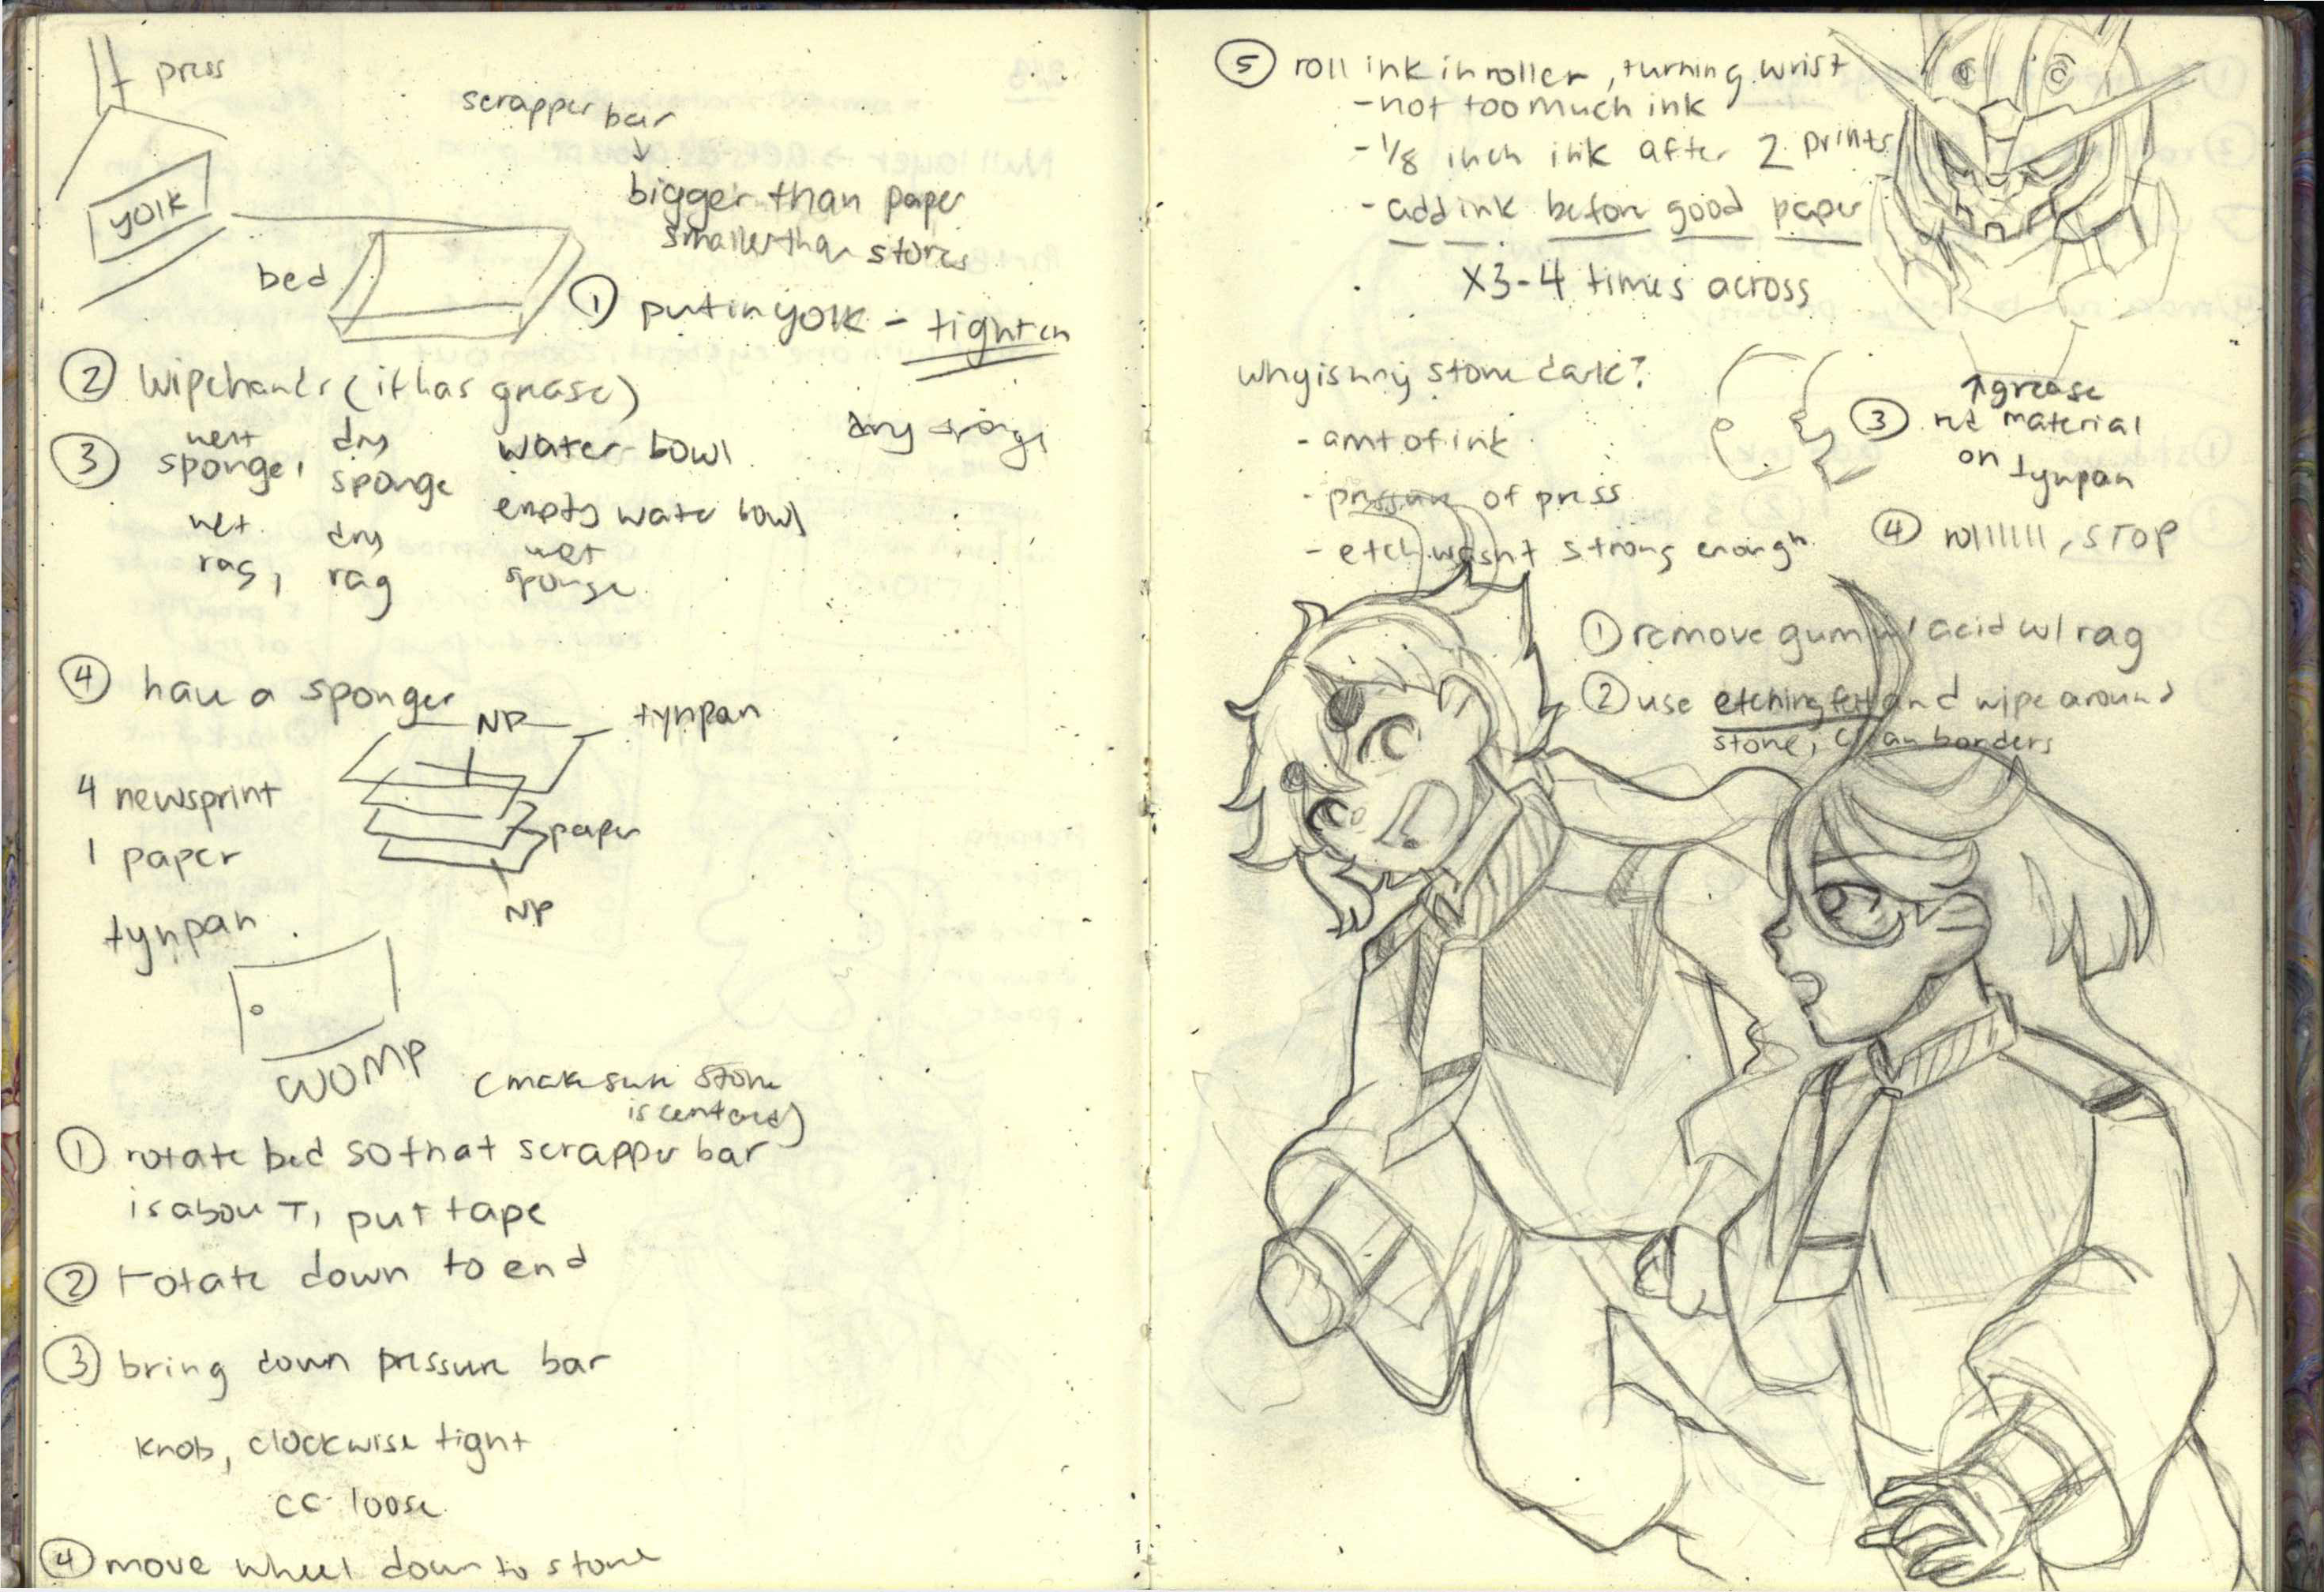 press
scrapper bar
↓
bigger than paper
smaller than stones
yolk
bed
① put in yolk - tighten
② Wipe hands (it has grease)
③ wet sponge, dry sponge water bowl dry sponge
empty water bowl
wet rag, dry rag wet sponge
④ have a sponger
NP tynpan
4 newsprint
1 paper
paper
tynpan
NP
WOMP
(make sure stone
is centered)
① rotate bed so that scrapper bar
is about T, put tape
② rotate down to end
③ bring down pressure bar
knob, clockwise tight
cc loose
④ move wheel down to stone
⑤ roll ink in roller, turning wrist
- not too much ink
- 1/8 inch ink after 2 prints
- add ink before good paper
x3-4 times across
why is my stone dark?
- amt of ink
- pressure of press
- etch wasn't strong enough
↑ grease
③ material
on tynpan
④ rollllll, STOP
① remove gum w/ acid w/ rag
② use etching felt and wipe around
stone, clean borders